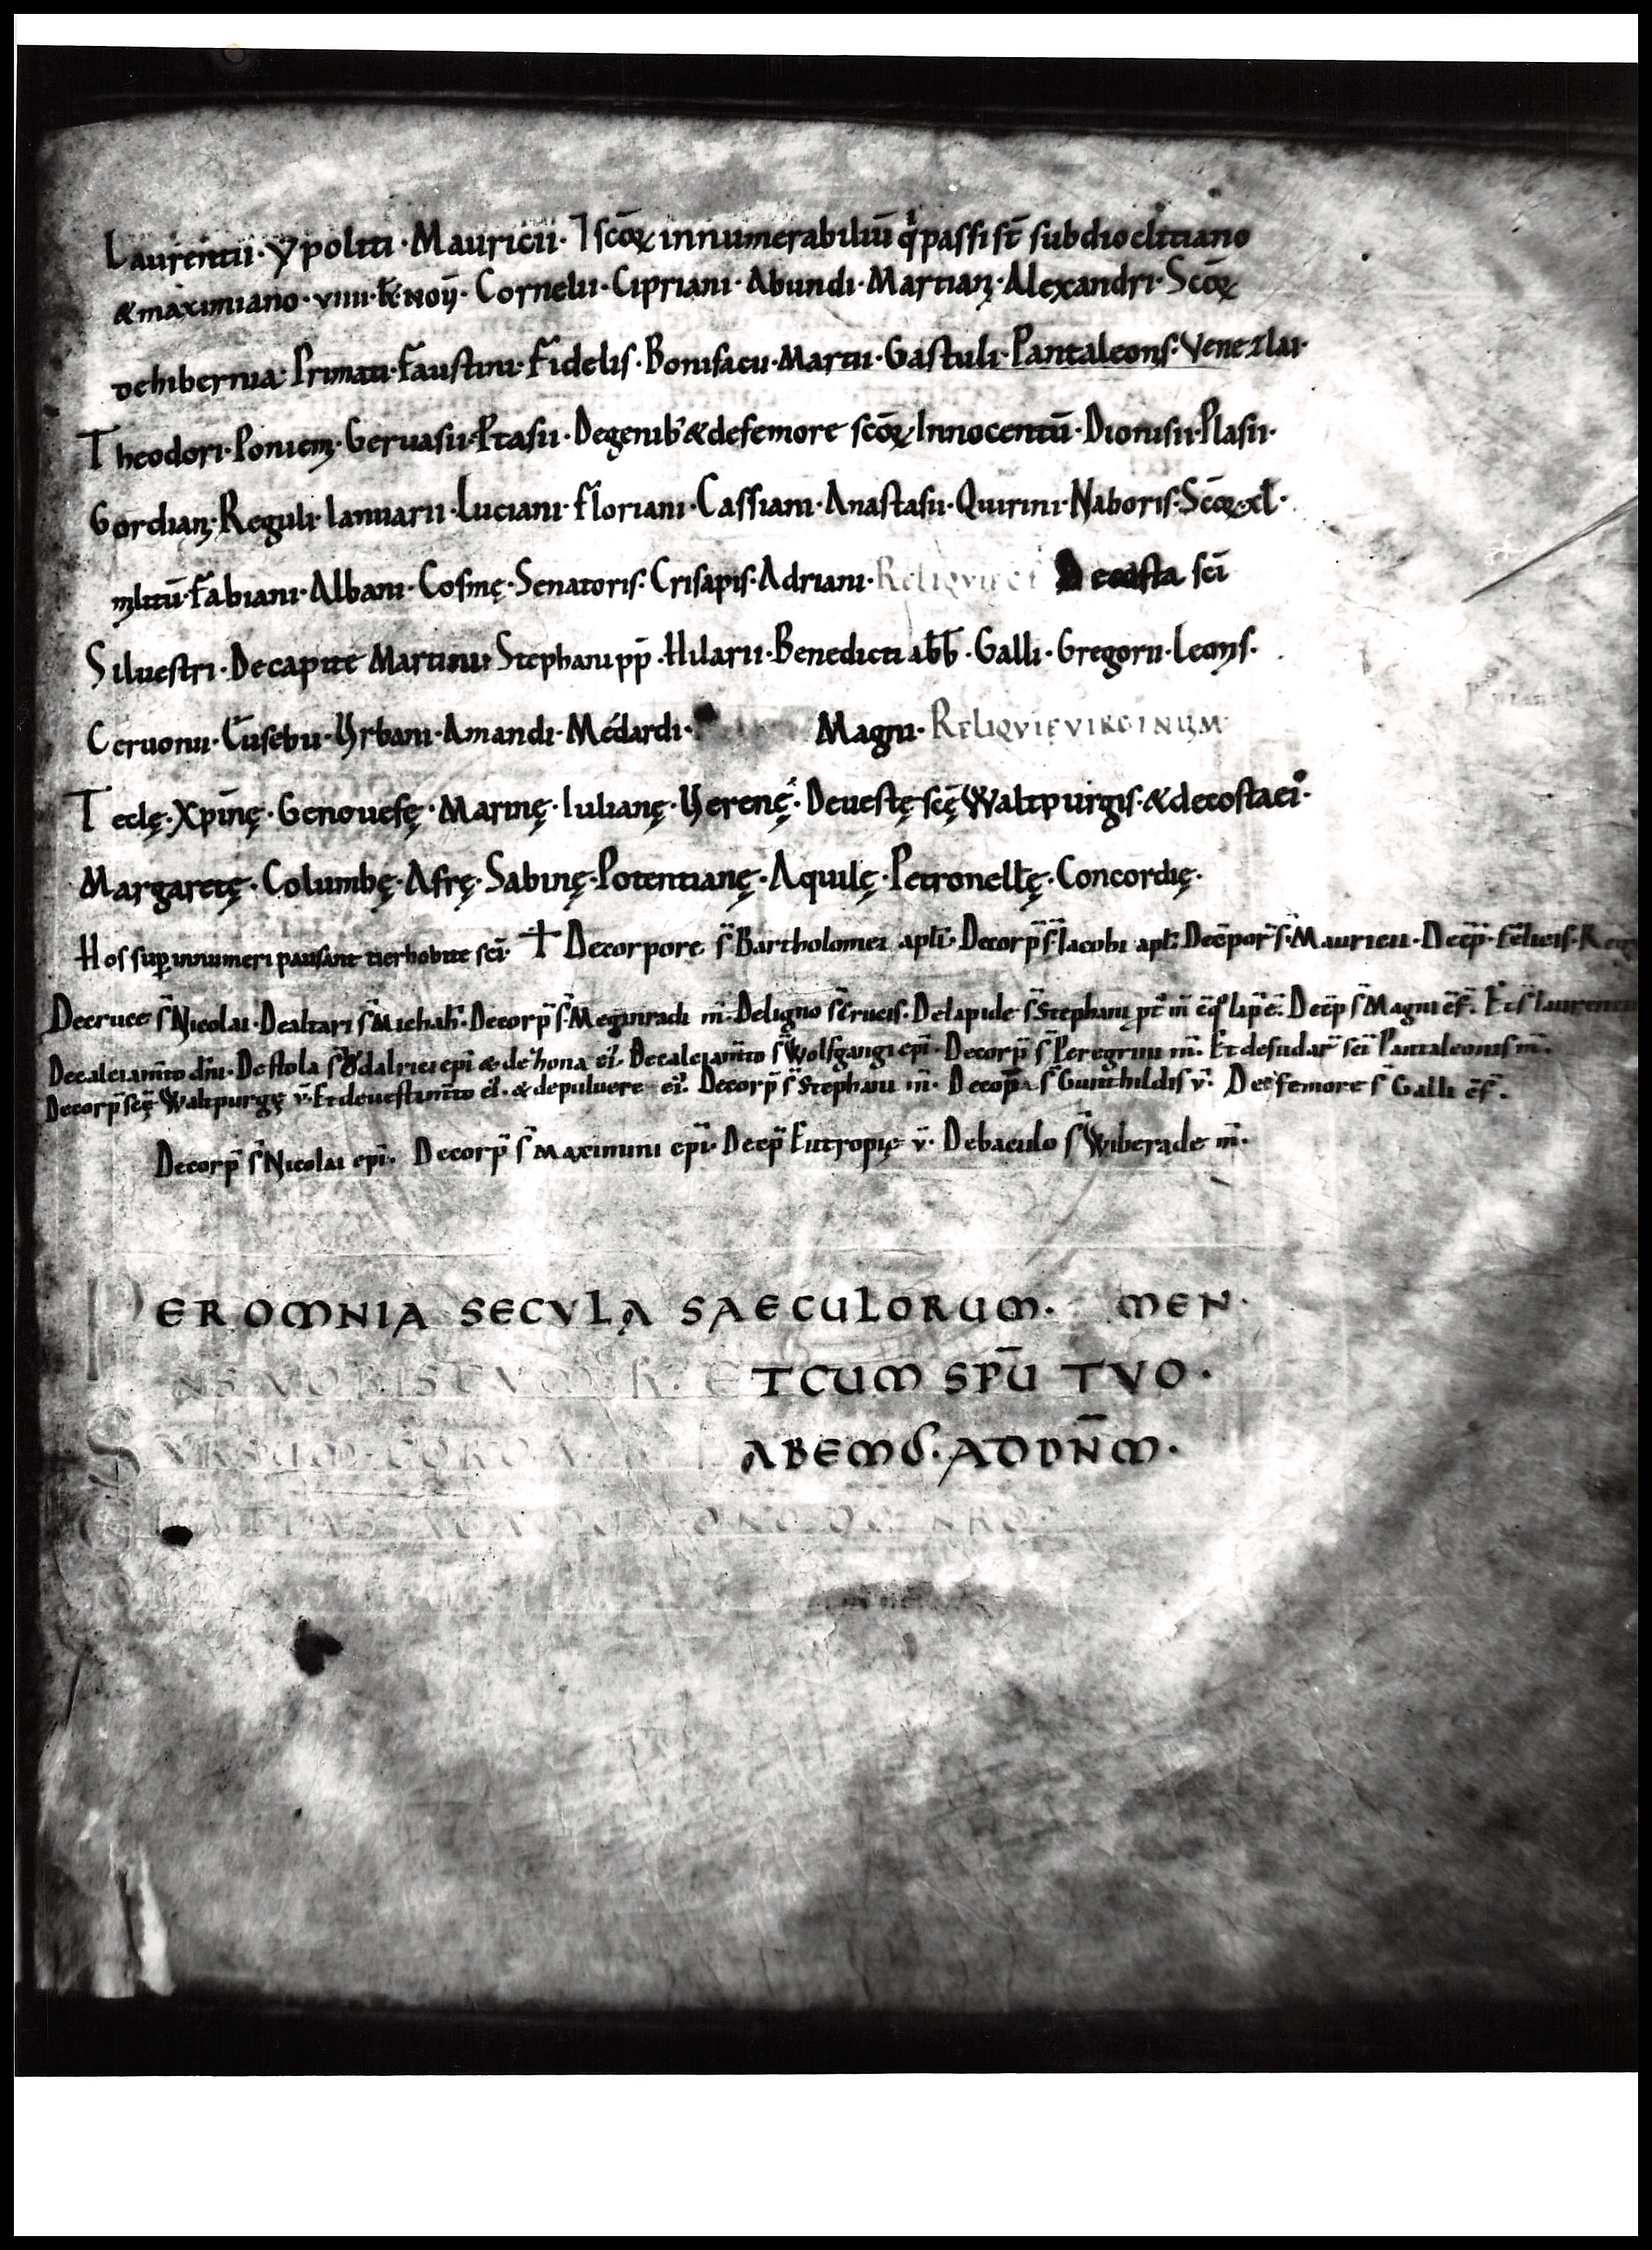 Laurentii · ypoliti · Mauricii · ⁊ scōꝝ innumerabiliū q̇ passi st̄ sub dioclitiano
& maximiano · viiii · k̄ · noṽ · Cornelii · Cipriani · Abundi · Martiani · Alexandri · Scōꝝ
de hibernia · Primati · Faustini · Fidelis · Bonifacii · Martii · Gastuli · Pantaleonis · Venezlai ·
Theodori · Geruasii · Ptasii · De genib' & de femore scōꝝ Innocentū · Dionisii · Plasii ·
Gordiani · Reguli · Ianuarii · Luciani · Floriani · Cassiani · Anastasii · Quirini · Naboris · Scōꝝ · xl ·
militū · Fabiani · Albani · Cosmę · Senatoris · Crisapis · Adriani · De costa sc̄i
Siluestri · De capite Martini · Stephani pp̄ · Hilarii · Benedicti abb̄ · Galli · Gregorii · Leonis ·
Ceruonii · Eusebii · Vrbani · Amandi · Médardi · Magni · Reliqvię virginvm
Teclę · Xp̄inę · Genouefę · Marinę · Iulianę · Herenę · De uestę scę̄ Waltpurgis · & de costa ei' ·
Margaretę · Columbę · Afrę · Sabinę · Potentianę · Aquilę · Petronellę · Concordię ·
Hos sup̄ innumeri pausant hic sc̄i · † De corpore s̄ Bartholomei apl̄i · De corp̄ s̄ Iacobi apl̄i De cp̄or̄ s̄ Mauricii · De cp̄ · Felicis ·
De cruce s̄ Nicolai · De altari s̄ Michah̄ · De corp̄ s̄ Meginradi m̄ · De ligno s̄ crucis · De lapide s̄ Stephani De cp̄ s̄ Magni c̄f · Et s̄ Laurentii
De calciam̄to dn̄i · De stola s̄ Ódalrici ep̄i & de ei' · De calciam̄to s̄ Wolfgangi ep̄i · De corp̄ s̄ Peregrini m̄ · Et de sudar̄ sc̄i Pantaleonis m̄ ·
De corp̄ scę̄ Waltpurgę v̄ · Et de uestim̄to ei' · & de puluere ei' · De corp̄ s̄ Stephani m̄ · De cop̄a s̄ Gunthildis v̄ · De femore s̄ Galli c̄f ·
De corp̄ s̄ Nicolai ep̄i · De corp̄ s̄ Maximini ep̄i · De cp̄ Eutropię v̄ · De baculo s̄ Wiberade m̄ ·
PER OMNIA SECVLA SAECULORUM · MEN ·
NS VOBISCVM R · ET CUM SPŪ TVO ·
SVRSUM CORDA · ABEMUS · AD DN̄M ·